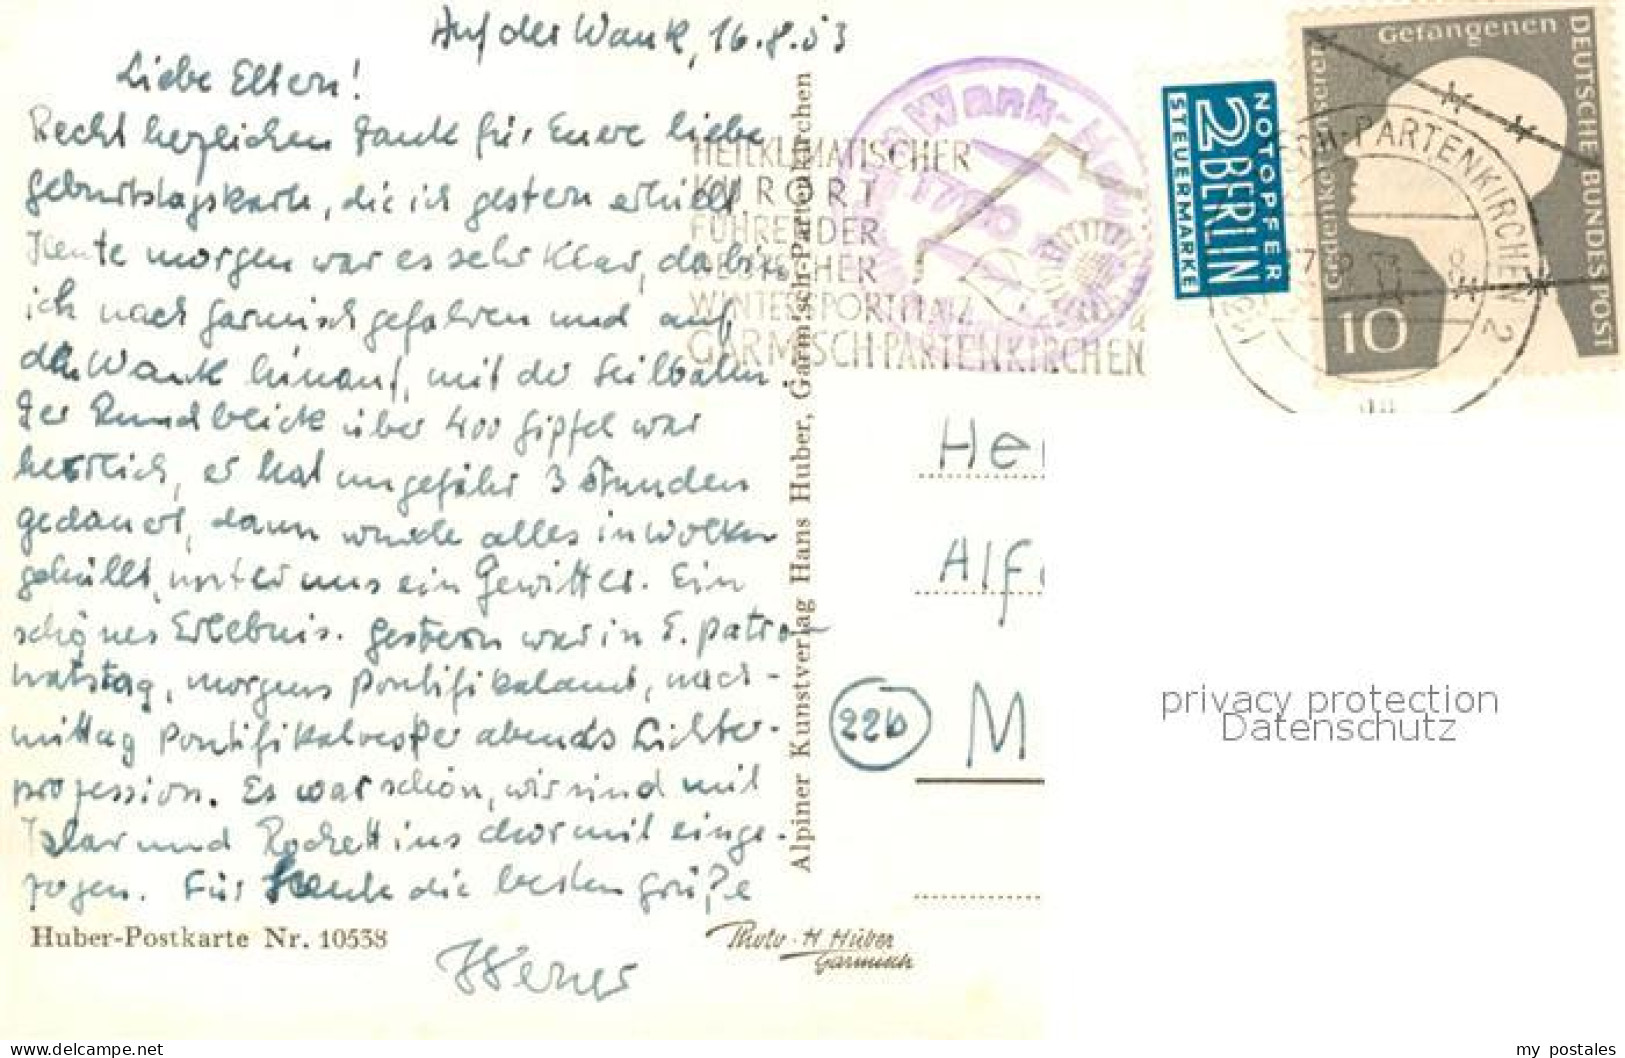 Auf der Wank, 16.8.53
Liebe Eltern!
Recht herzlichen Dank für Eure liebe
Geburtstagskarte, die ich gestern erhielt
Heute morgen war es sehr klar, da bin
ich nach Garmisch gefahren und auf
den Wank hinauf, mit der Seilbahn.
Der Rundblick über 400 Gipfel war
herrlich, er hat ungefähr 3 Stunden
gedauert, dann wurde alles in Wolken
gehüllt, unter uns ein Gewitter. Ein
schönes Erlebnis. Gestern war in E. Patro-
natstag, morgens Pontifikalamt, nach-
mittag Pontifikalvesper abends Lichter-
prozession. Es war schön, wir sind mit
Talar und Rochett ins Chor mit einge-
zogen. Für heute die besten Grüße
Werner
Huber-Postkarte Nr. 10538
Photo H. Huber
Garmisch
Alpiner Kunstverlag Hans Huber, Garmisch-Partenkirchen
HEILKLIMATISCHER
KURORT
FÜHRENDER
DEUTSCHER
WINTERSPORTPLATZ
GARMISCH PARTENKIRCHEN
Wank-Ha
1780 m
NOTOPFER
2 BERLIN
STEUERMARKE
Gedenket unserer Gefangenen
DEUTSCHE BUNDESPOST
10
PARTENKIRCHEN 2
He
Alf
22b
M
privacy protection
Datenschutz
www.delcampe.net
my_postales